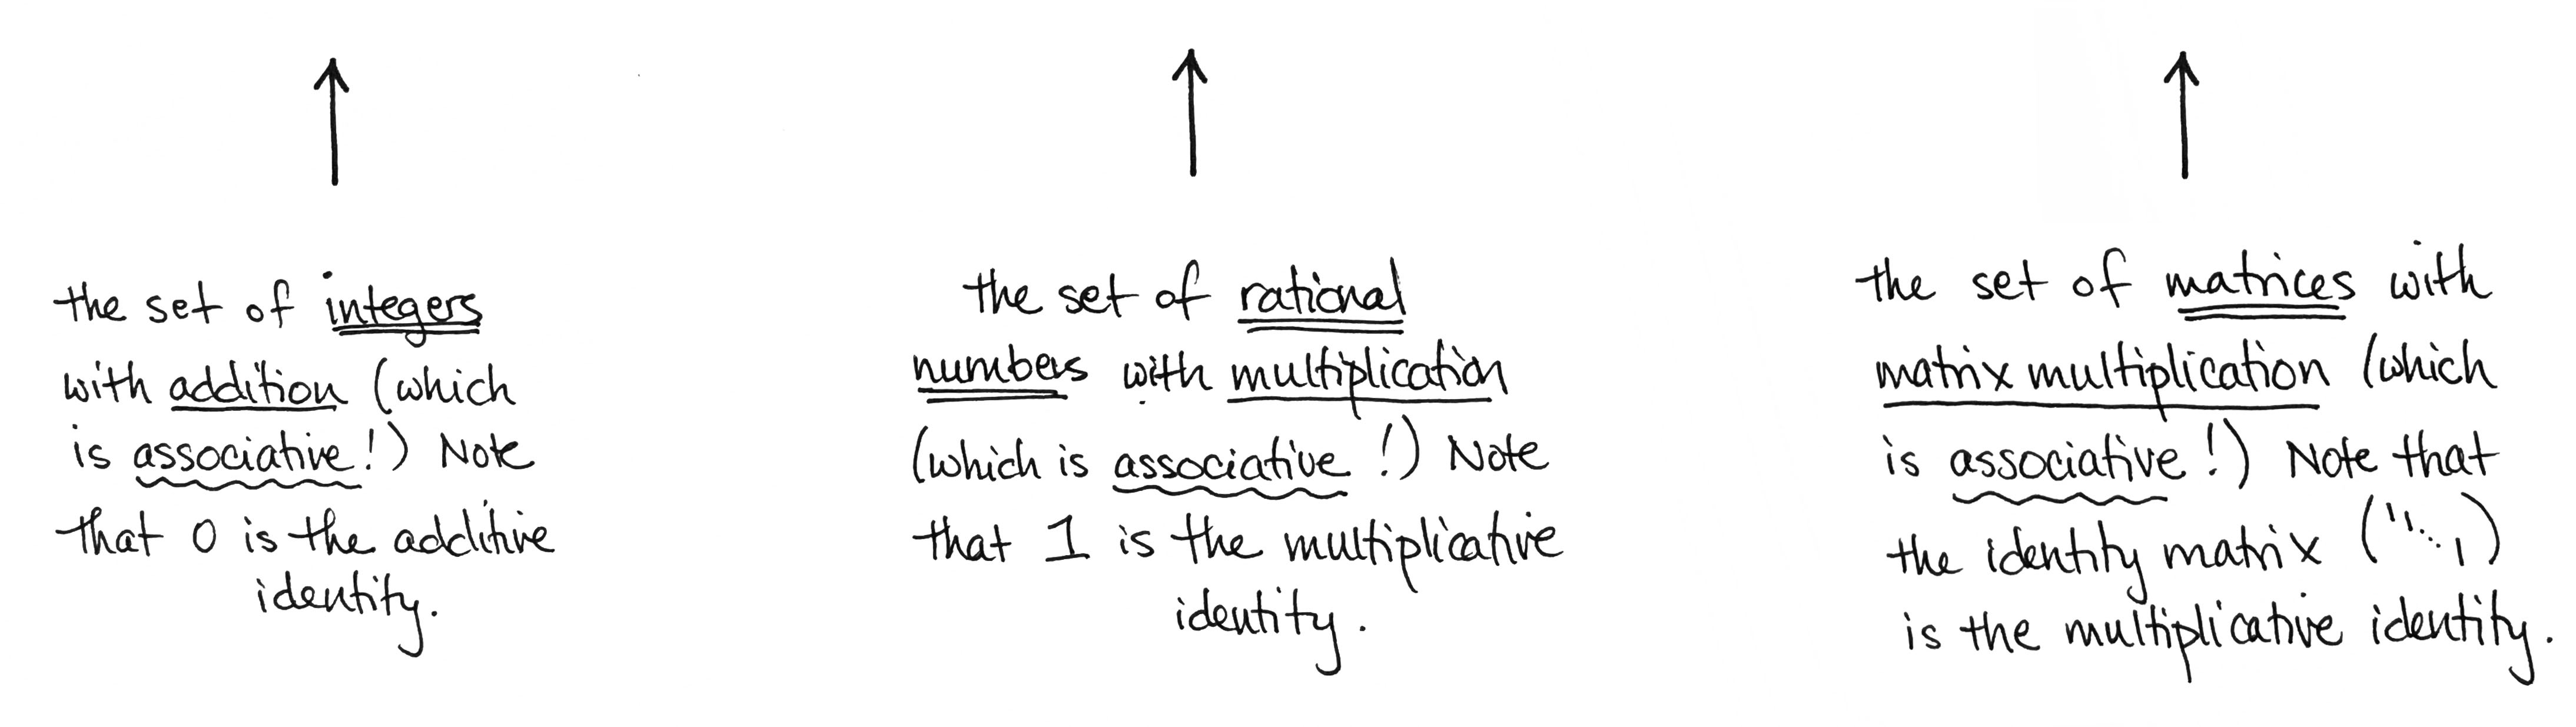 the set of integers
with addition (which
is associative!) Note
that 0 is the additive
identity.
the set of rational
numbers with multiplication
(which is associative!) Note
that 1 is the multiplicative
identity.
the set of matrices with
matrix multiplication (which
is associative!) Note that
the identity matrix (11⋱1)
is the multiplicative identity.